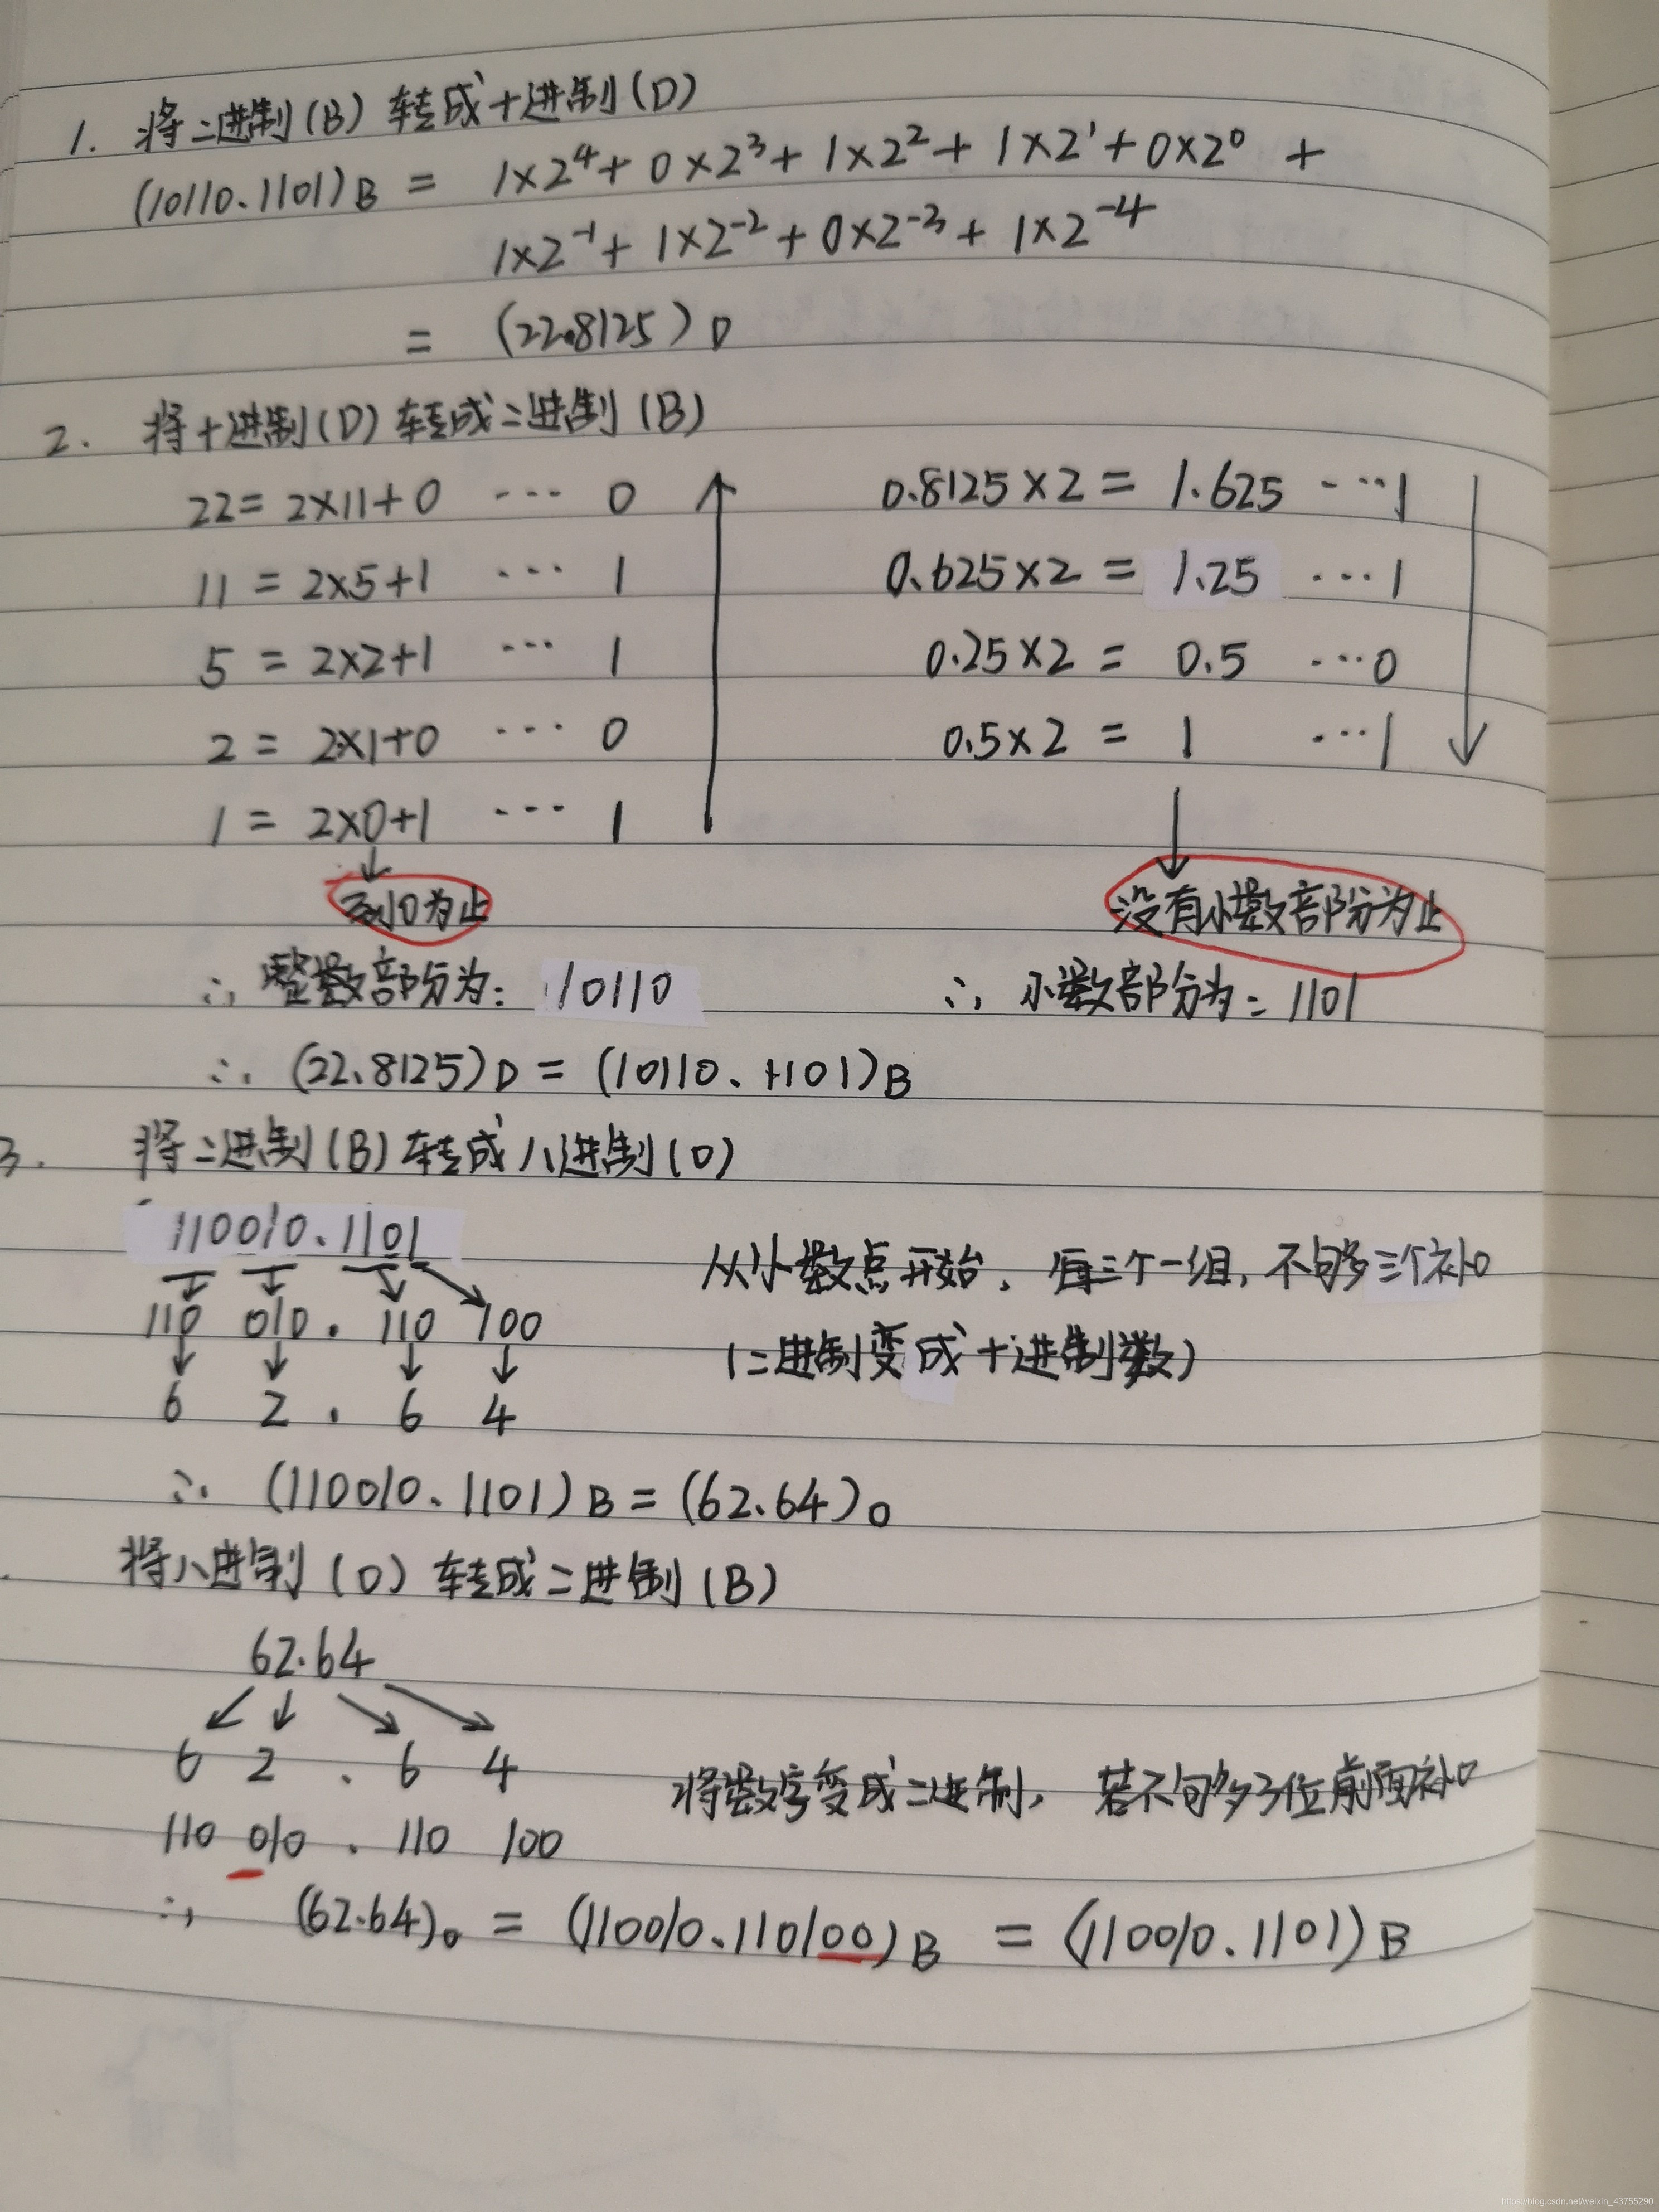 1. 将二进制(B)转成十进制(D)
(10110.1101)B = 1×2⁴+0×2³+1×2²+1×2¹+0×2⁰ +
1×2⁻¹+1×2⁻²+0×2⁻³+1×2⁻⁴
= (22.8125)D
2. 将十进制(D)转成二进制(B)
22=2×11+0 ··· 0 0.8125×2=1.625 ···1
11=2×5+1 ··· 1 0.625×2=1.25 ···1
5=2×2+1 ··· 1 0.25×2=0.5 ···0
2=2×1+0 ··· 0 0.5×2=1 ···1
1=2×0+1 ··· 1
到0为止 没有小数部分为止
∴ 整数部分为: 10110 ∴ 小数部分为: 1101
∴ (22.8125)D=(10110.1101)B
3. 将二进制(B)转成八进制(O)
110010.1101 从小数点开始, 每三个一组, 不够三个补0
110 010 . 110 100 (二进制变成十进制数)
6 2 . 6 4
∴ (110010.1101)B=(62.64)O
. 将八进制(O)转成二进制(B)
62.64
6 2 . 6 4 将数字变成二进制, 若不够3位前面补0
110 010 . 110 100
∴ (62.64)O = (110010.110100)B = (110010.1101)B
https://blog.csdn.net/weixin_43755290